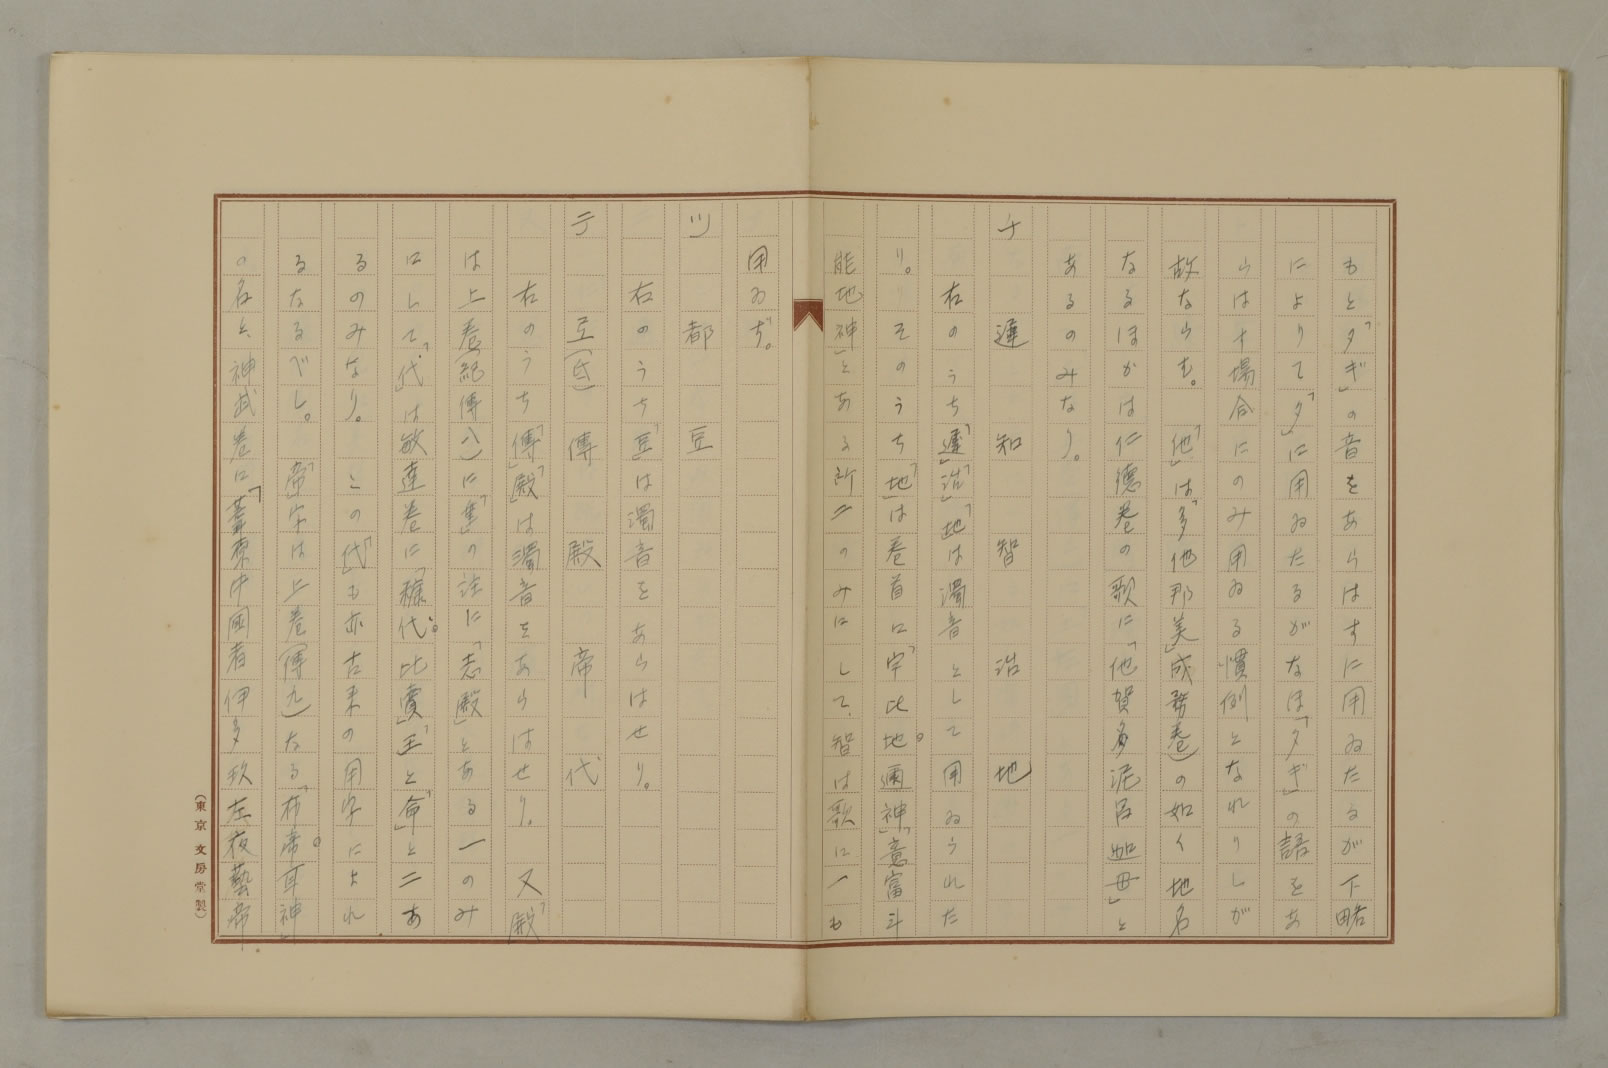 もと「タギ」の音をあらはすに用ゐたるが下略
によりて「タ」に用ゐたるがなほ「タギ」の語をあ
らはす場合にのみ用ゐる慣例となれりしが
故ならむ。「他」は「多他那美」(成務巻)の如く地名
なるほかは仁徳巻の歌に「他賀多泥呂迦母」と
あるのみなり。
チ 遅 知 智 治 地
右のうち「遅」「治」「地」は濁音として用ゐられた
り。そのうち「地」は巻首に「宇比地邇神」「意富斗
能地神」とある所二のみにして、智は歌に一も
用ゐず。
ツ 都 豆
右のうち「豆」は濁音をあらはせり。
テ 弖(氐) 傳 殿 帝 代
右のうち「傳」「殿」は濁音をあらはせり。又「殿」
は上巻(記傳八)に「隼」の注に「志殿」とある一のみ
にして、「代」は敏達巻に「穣代、比賣」「王」と「命」と二あ
るのみなり。この「代」も亦古来の用字によれ
るなるべし。「帝」字は上巻(傳九)なる「布帝耳神」
の名と、神武巻に「葦原中國者伊多玖左夜藝帝
(東京 文房堂製)